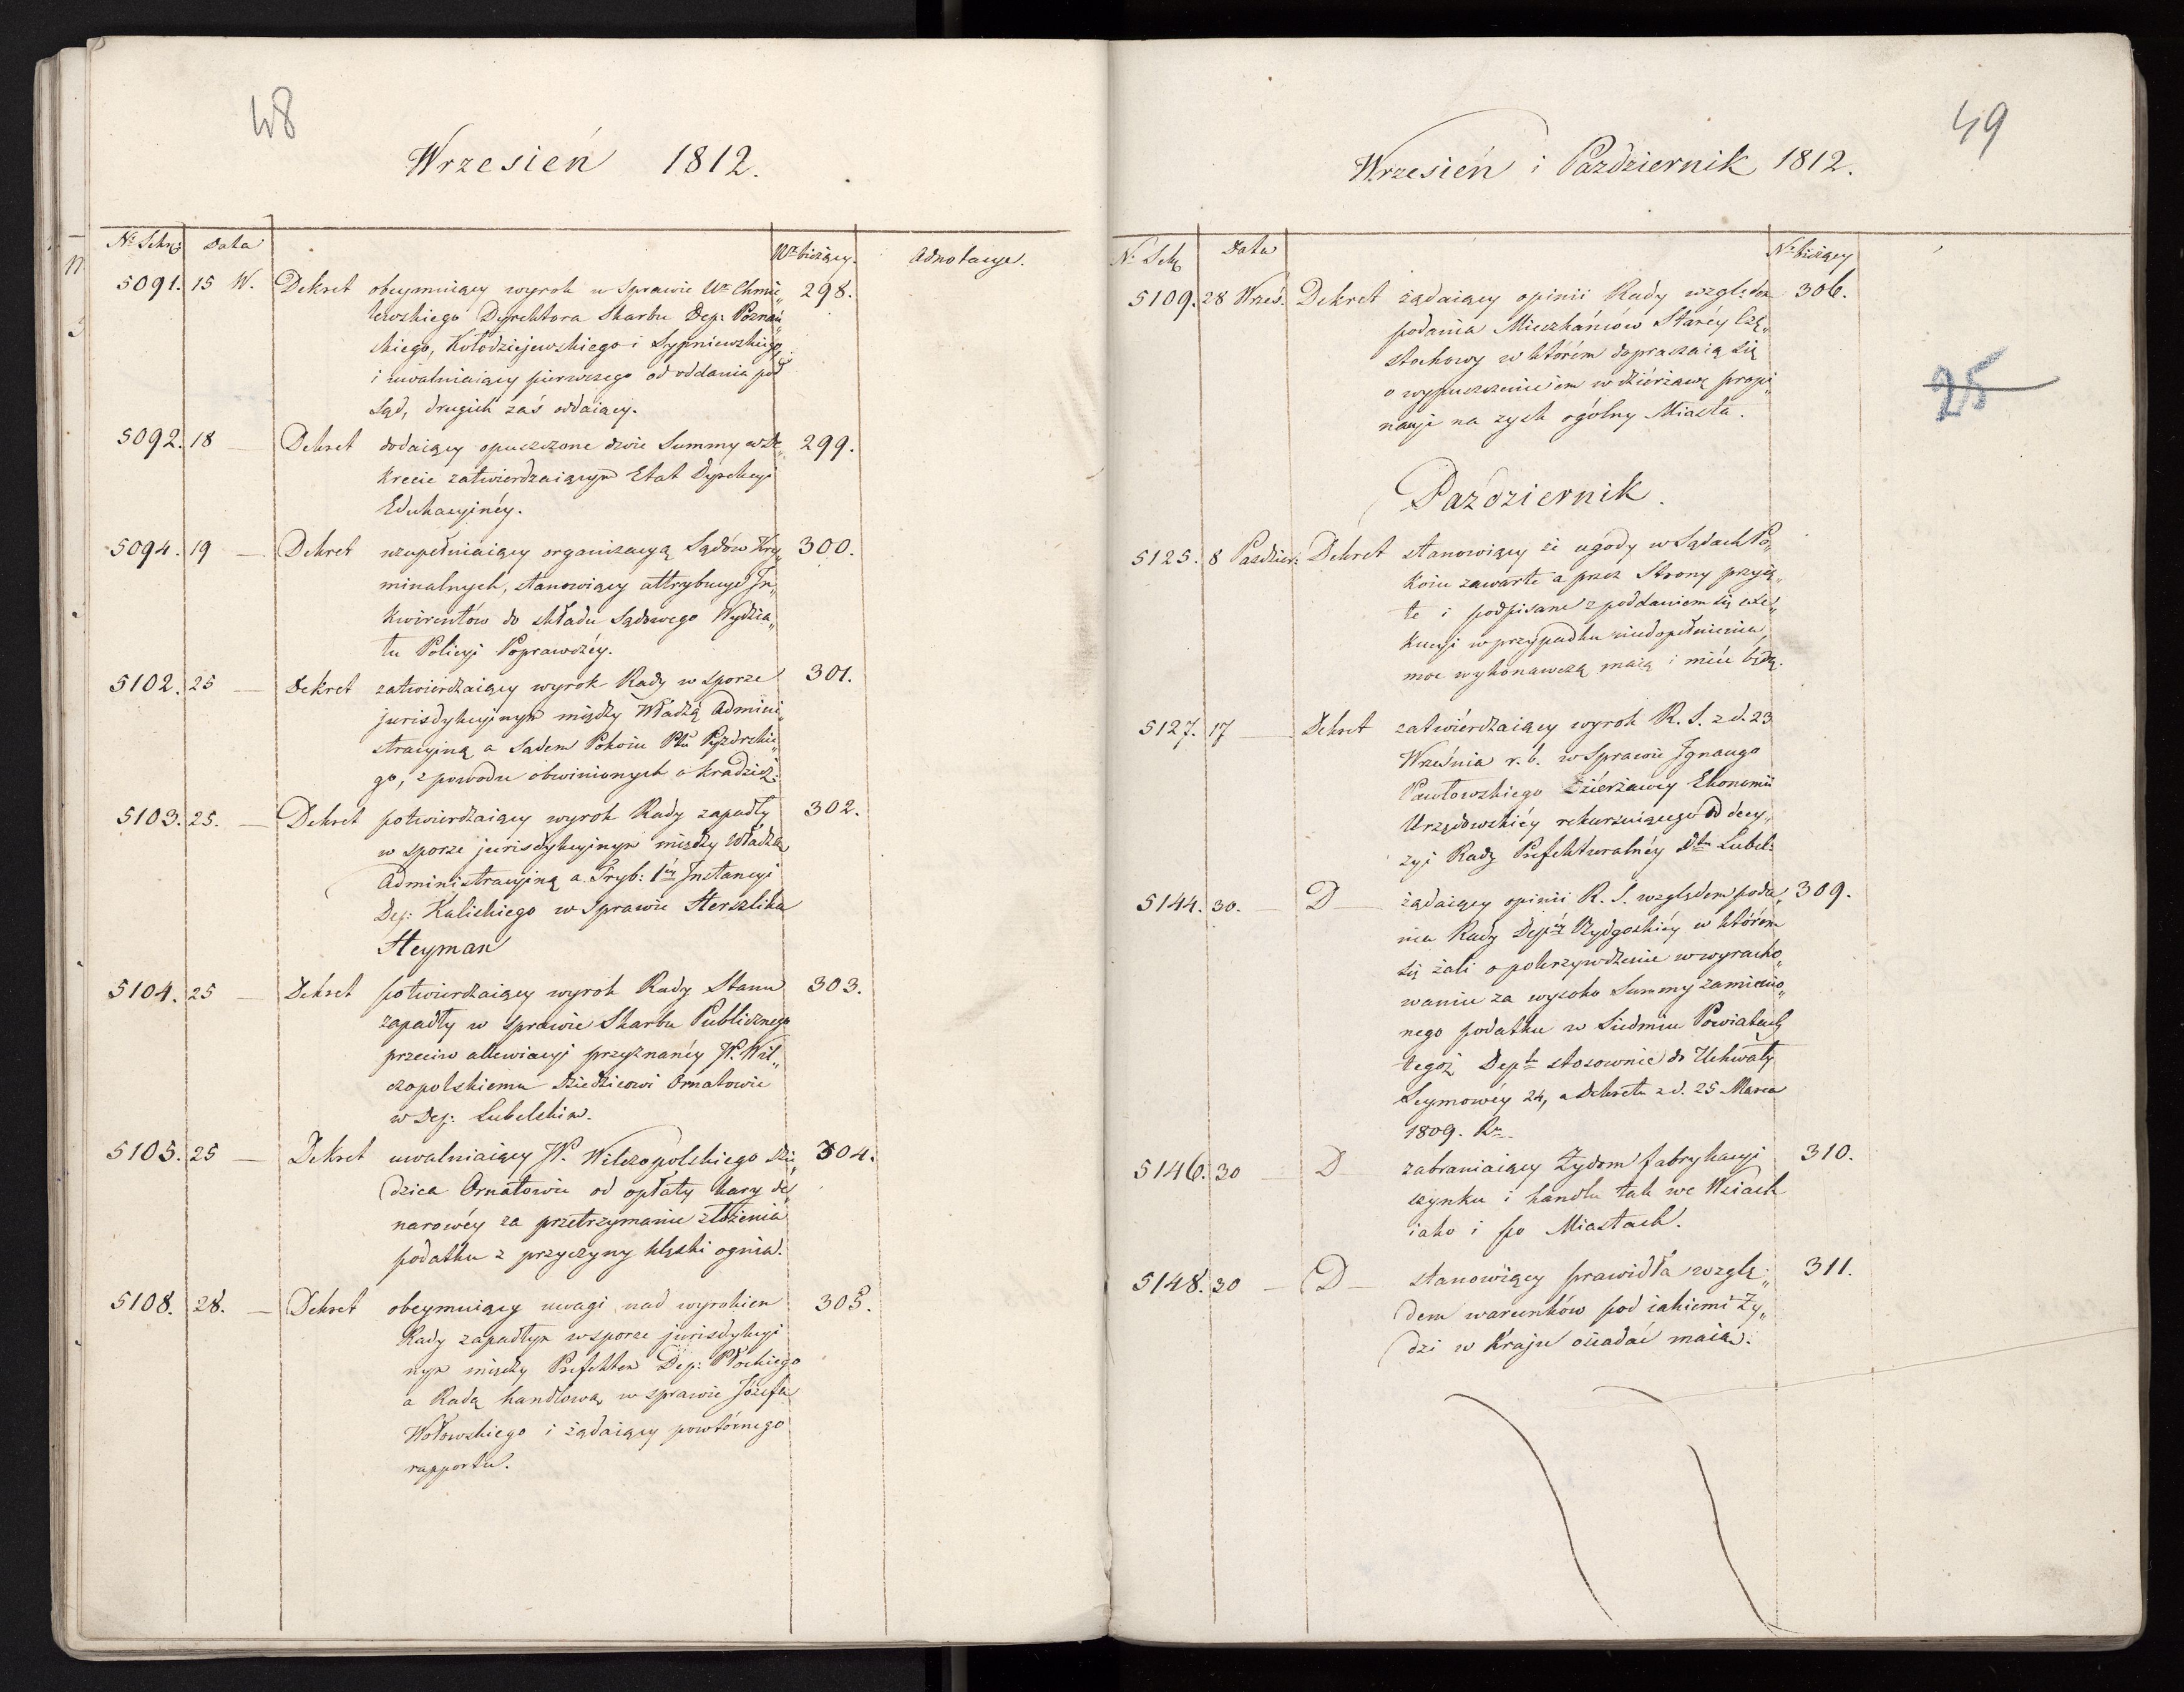 48
Wrzesień 1812.
Data
Nr bieżący.
Adnotacye.
5091. 15 W. Dekret obeymuiący wyrok w sprawie Ur Chmie„ 298.
lewskiego Dyrektora Skarbu Dep: Poznań„
skiego, Kołodziejewskiego i Sypniewskiego,
i uwalniaiący pierwszego od oddania pod
Sąd, drugich zaś oddaiący.
5092. 18 — Dekret dodaiący opuszczone dwie Summy w De„ 299.
krecie zatwierdzaiącym Etat Dyrekcyi
Edukacyinéy.
5094. 19 — Dekret uzupełniaiący organizacyą Sądów Kry„ 300.
minalnych, stanowiący attrybucye In„
kwirentów do składu Sądowego Wydzia„
łu Policyi Poprawczéy.
5102. 25 — Dekret zatwierdzaiący wyrok Rady w sporze 301.
jurisdykcyjnym między Władzą Admini„
stracyiną a Sadem Pokoiu Ptu Pyzdrskie„
go, z powodu obwinionych o kradzież.
5103. 25. — Dekret potwierdzaiący wyrok Rady zapadły 302.
w sporze jurisdykcyjnym między Władzą
Administracyiną a Tryb: 1éy Instancyi
Dep: Kaliskiego w Sprawie Herszlika
Heyman
5104. 25 — Dekret potwierdzaiący wyrok Rady Stanu 303.
zapadły w sprawie Skarbu Publicznego
przeciw allewiacyi przyznanéy W. Wil„
czopolskiemu Dziedzicowi Ornatowic
w Dep: Lubelskim.
5105. 25 — Dekret uwalniaiący W. Wilczopolskiego Dzie„ 304.
dzica Ornatowic od opłaty kary de„
narowéy za przetrzymanie złożenia
podatku z przyczyny klęski ognia.
5108. 28. — Dekret obeymuiący uwagi nad wyrokiem 305.
Rady zapadłym w sporze jurisdykcyi
nym między Prefektem Dep: Płockiego
a Radą handlową w sprawie Józefa
Wołowskiego i żądaiący powtórnego
rapportu.
49
Wrzesień i Pazdziernik 1812.
Data
No bieżący
5109. 28 Wrześ. Dekret żądaiący opinii Rady względem 306.
podania Mieszkańców Staréy Czę„
stochowy w którém dopraszaią się
o wypuszczenie im w dzierżawę propi„
nacyi na zysk ogólny Miasta.
25
Październik.
5125. 8 Pazdzier: Dekret stanowiący że ugody w Sądach Po„
koiu zawarte a przez Strony przyię„
te i podpisane z poddaniem się exe„
kucyi w przypadku niedopełnienia
moc wykonawczą maią i mieć będą.
5127. 17 — Dekret zatwierdzaiący wyrok R. S. z d. 23
Września r. b. w Sprawie Ignacego
Pawłowskiego Dzierżawcy Ekonomii
Urzędowskiéy rekursuiącego od decy„
zyi Rady Prefekturalnéy Dtu Lubel:
5144. 30. — D — żądaiący opinii R. S. względem poda„ 309.
nia Rady Depéy Bydgoskiéy w którém
się żali o pokrzywdzenie w wyracho„
waniu za wysoko Summy zamienio„
nego podatku w Siedmiu Powiatach
tegoż Deptu stosownie do Uchwały
Seymowéy 24, a Dekretu z d. 25 Marca
1809. Ru
5146. 30 — D — zabraniaiący Żydom fabrykacyi 310.
szynku i handlu tak we Wsiach
iako i po Miastach.
5148. 30 — D — stanowiący prawidła wzglę„ 311.
dem warunków pod iakiemi Ży„
dzi w Kraju osiadać maią.